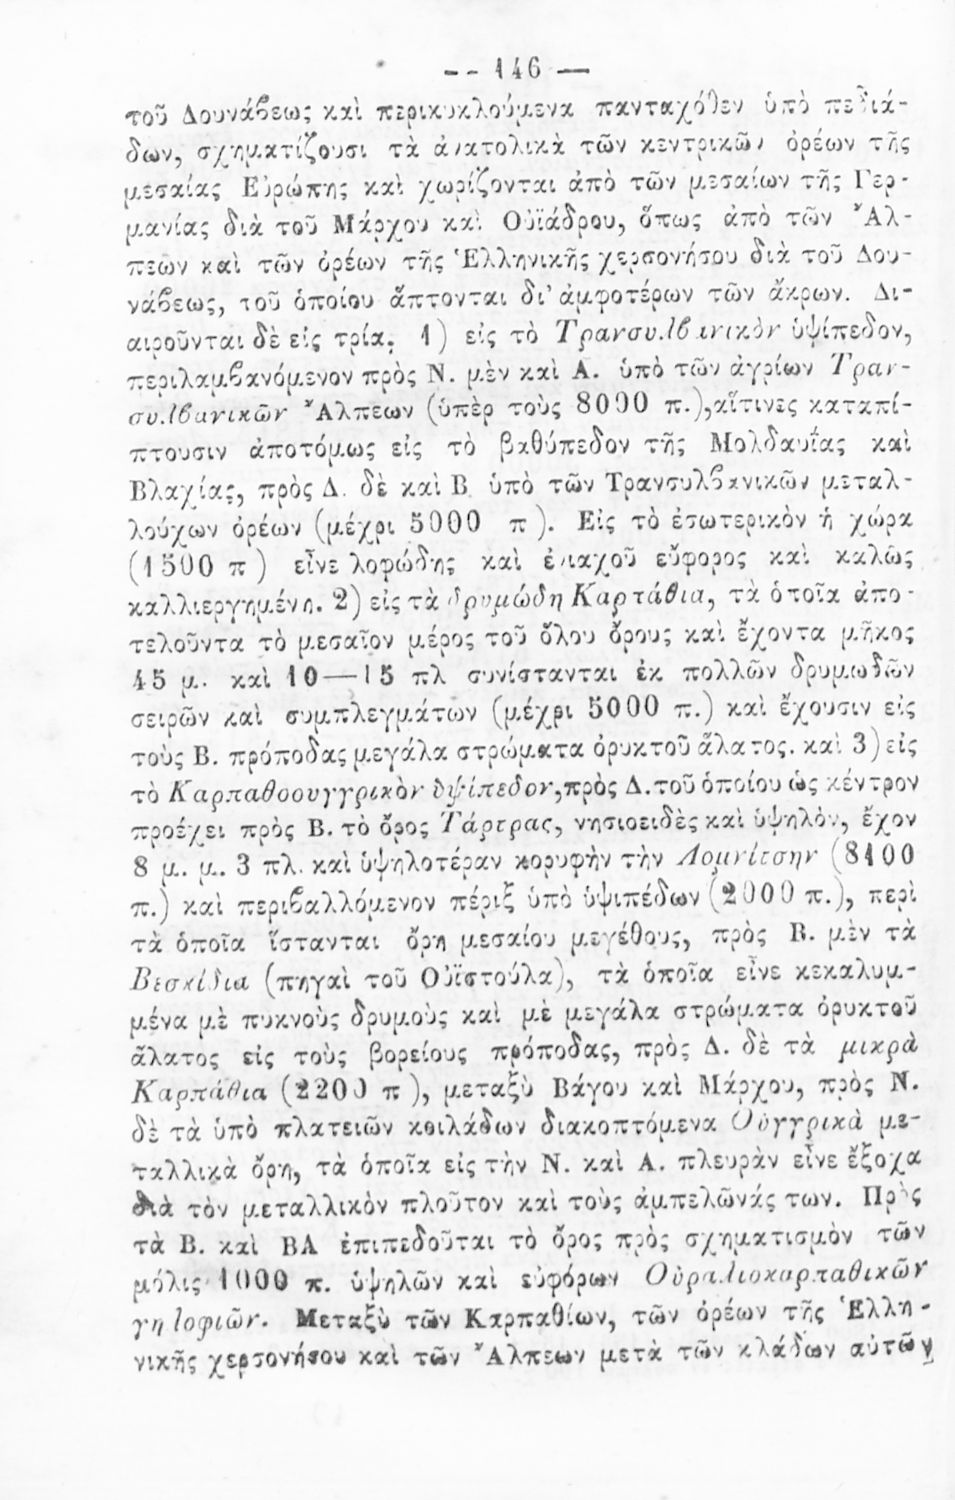 -- 146 —
τοῦ Δουνάβεως καὶ περικυκλούμενα πανταχόθεν ὑπὸ πεδιά-
δων, σχηματίζουσι τὰ ἀνατολικὰ τῶν κεντρικῶν ὀρέων τῆς
μεσαίας Εὐρώπης καὶ χωρίζονται ἀπὸ τῶν μεσαίων τῆς Γερ-
μανίας διὰ τοῦ Μάρχου καὶ Οὐϊάδρου, ὅπως ἀπὸ τῶν Ἄλ-
πεων καὶ τῶν ὀρέων τῆς Ἑλληνικῆς χερσονήσου διὰ τοῦ Δου-
νάβεως, τοῦ ὁποίου ἅπτονται δι' ἀμφοτέρων τῶν ἄκρων. Δι-
αιροῦνται δὲ εἰς τρία· 1) εἰς τὸ Τρανσυλβανικὸν ὑψίπεδον,
περιλαμβανόμενον πρὸς Ν. μὲν καὶ Α. ὑπὸ τῶν ἀγρίων Τραν-
συλβανικῶν Ἄλπεων (ὑπὲρ τοὺς 8000 π.), αἵτινες καταπί-
πτουσιν ἀποτόμως εἰς τὸ βαθύπεδον τῆς Μολδαυΐας καὶ
Βλαχίας, πρὸς Δ. δὲ καὶ Β. ὑπὸ τῶν Τρανσυλβανικῶν μεταλ-
λούχων ὀρέων (μέχρι 5000 π). Εἰς τὸ ἐσωτερικὸν ἡ χώρα
(1500 π) εἶνε λοφώδης καὶ ἐνιαχοῦ εὔφορος καὶ καλῶς
καλλιεργημένη. 2) εἰς τὰ δρυμώδη Καρπάθια, τὰ ὁποῖα ἀπο-
τελοῦντα τὸ μεσαῖον μέρος τοῦ ὅλου ὄρους καὶ ἔχοντα μῆκος
45 μ. καὶ 10—15 πλ συνίστανται ἐκ πολλῶν δρυμωδῶν
σειρῶν καὶ συμπλεγμάτων (μέχρι 5000 π.) καὶ ἔχουσιν εἰς
τοὺς Β. πρόποδας μεγάλα στρώματα ὀρυκτοῦ ἅλατος. καὶ 3) εἰς
τὸ Καρπαθοουγγρικὸν ὑψίπεδον, πρὸς Δ. τοῦ ὁποίου ὡς κέντρον
προέχει πρὸς Β. τὸ ὄρος Τάρτρας, νησιοειδὲς καὶ ὑψηλόν, ἔχον
8 μ. μ. 3 πλ. καὶ ὑψηλοτέραν κορυφὴν τὴν Λομνίτσην (8100
π.) καὶ περιβαλλόμενον πέριξ ὑπὸ ὑψιπέδων (2000 π.), περὶ
τὰ ὁποῖα ἵστανται ὄρη μεσαίου μεγέθους, πρὸς Β. μὲν τὰ
Βεσκίδια (πηγαὶ τοῦ Οὐϊστούλα), τὰ ὁποῖα εἶνε κεκαλυμ-
μένα μὲ πυκνοὺς δρυμοὺς καὶ μὲ μεγάλα στρώματα ὀρυκτοῦ
ἅλατος εἰς τοὺς βορείους πρόποδας, πρὸς Δ. δὲ τὰ μικρὰ
Καρπάθια (2200 π), μεταξὺ Βάγου καὶ Μάρχου, πρὸς Ν.
δὲ τὰ ὑπὸ πλατειῶν κοιλάδων διακοπτόμενα Οὑγγρικὰ με-
ταλλικὰ ὄρη, τὰ ὁποῖα εἰς τὴν Ν. καὶ Α. πλευρὰν εἶνε ἔξοχα
διὰ τὸν μεταλλικὸν πλοῦτον καὶ τοὺς ἀμπελῶνάς των. Πρὸς
τὰ Β. καὶ ΒΑ ἐπιπεδοῦται τὸ ὄρος πρὸς σχηματισμὸν τῶν
μόλις 1000 π. ὑψηλῶν καὶ εὐφόρων Οὐραλιοκαρπαθικῶν
γηλοφιῶν. Μεταξὺ τῶν Καρπαθίων, τῶν ὀρέων τῆς Ἑλλη-
νικῆς χερσονήσου καὶ τῶν Ἄλπεων μετὰ τῶν κλάδων αὐτῶν